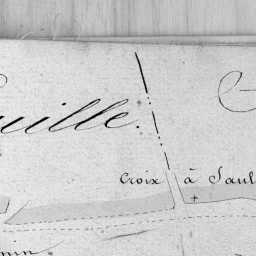 uille.
Croix à Saul